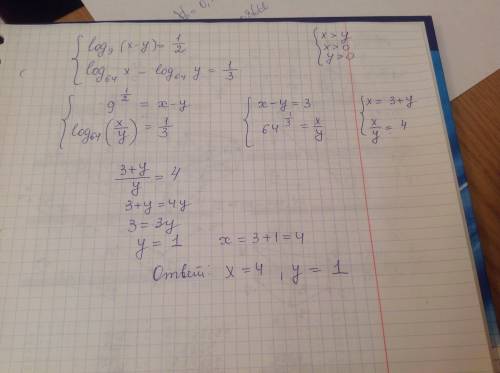 log₉(x-y)=1/2
x>y
x>0
y>0
log₆₄ x - log₆₄ y = 1/3
9^(1/2) = x-y
log₆₄(x/y) = 1/3
x-y=3
64^(1/3) = x/y
x=3+y
x/y = 4
(3+y)/y = 4
3+y=4y
3=3y
y=1 x=3+1=4
Ответ: x=4, y=1